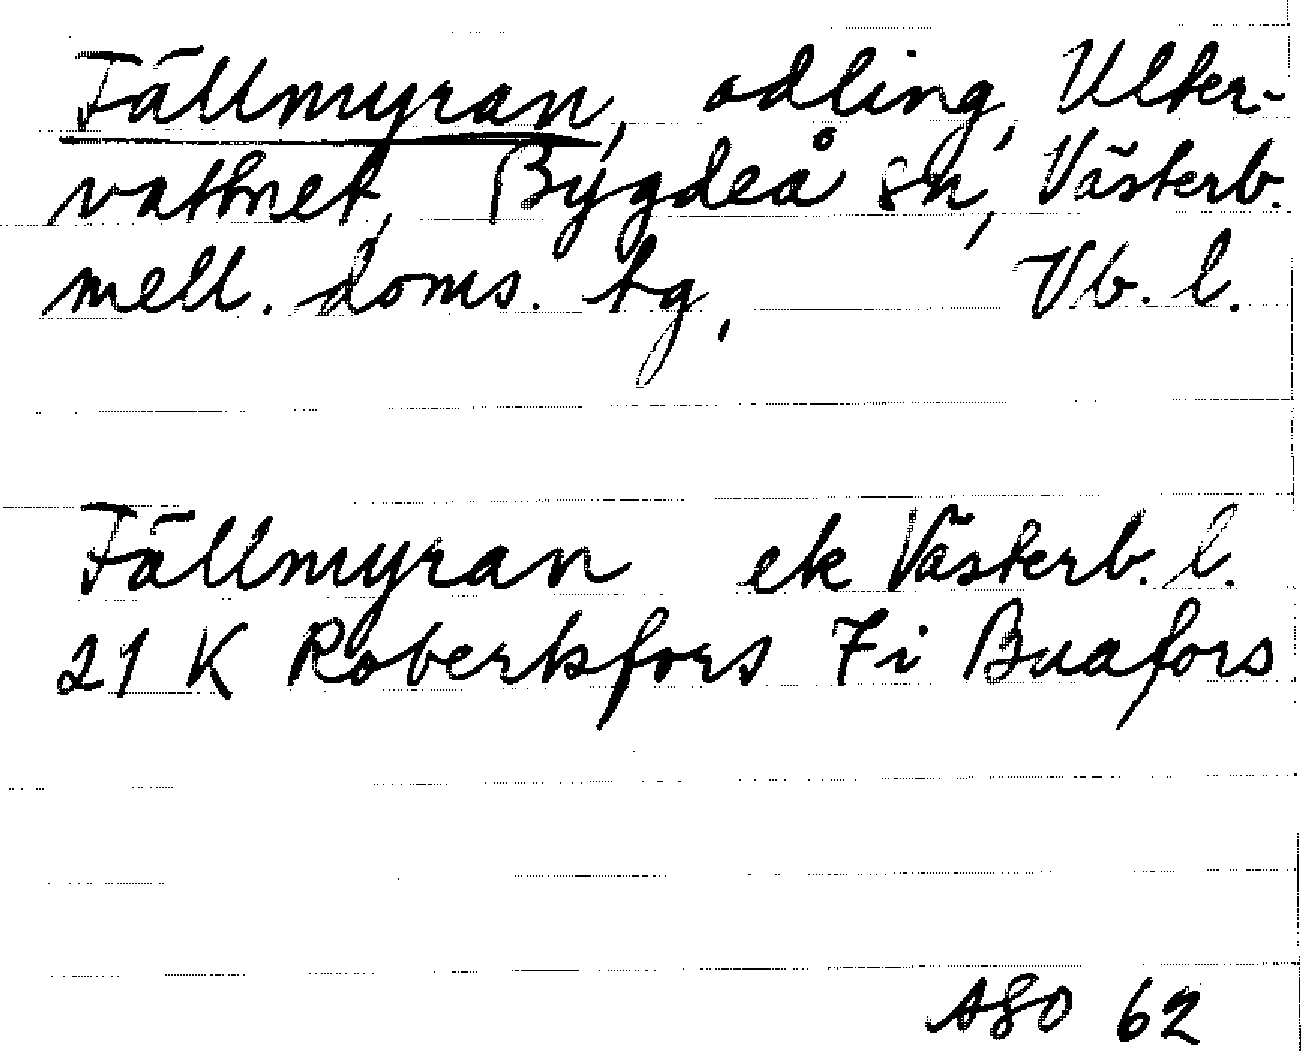 Fällmyran, odling, Ulter-
vattnet, Bygdeå sn, Västerb.
mell. doms. tg, Vb. l.
Fällmyran ek Västerb. l.
21 K Robertsfors 7 i Buafors
ASO 62